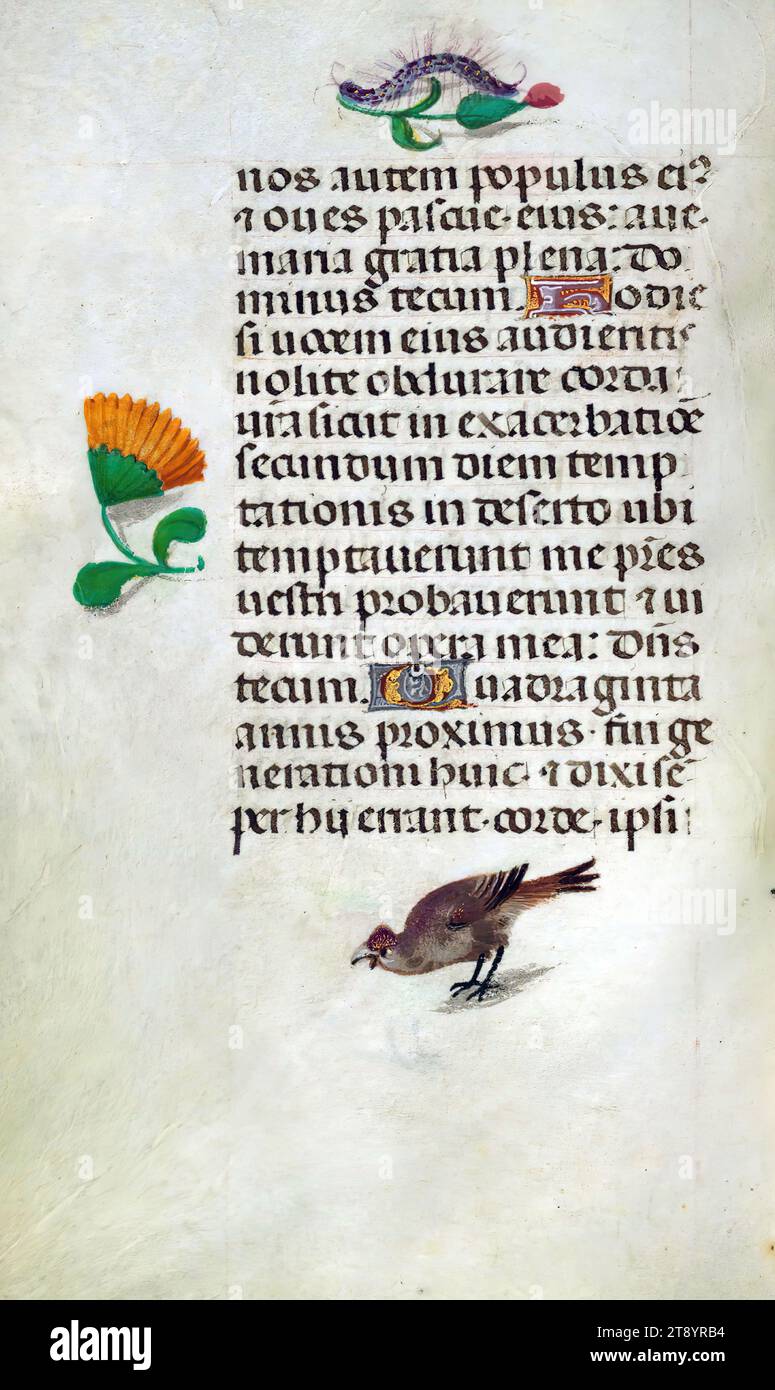 nos autem populus ei⁹
⁊ oues pascue· eius: aue·
maria gratia plena: Do
minus tecum. Hodie
si uocem eius audieritis
nolite obdurare corda
ur̃a sicut in exacerbatiõe
secundum diem temp
tationis in deserto ubi
temptauerunt me pr̃es
vestri probauerunt ⁊ ui
derunt opera mea: Dñs
tecum. Quadraginta
annis proximus· fui ge
nerationi huic· ⁊ dixi sẽ
per hij errant· corde· ipsi
alamy
alamy
Image ID: 2T8YRB4
www.alamy.com